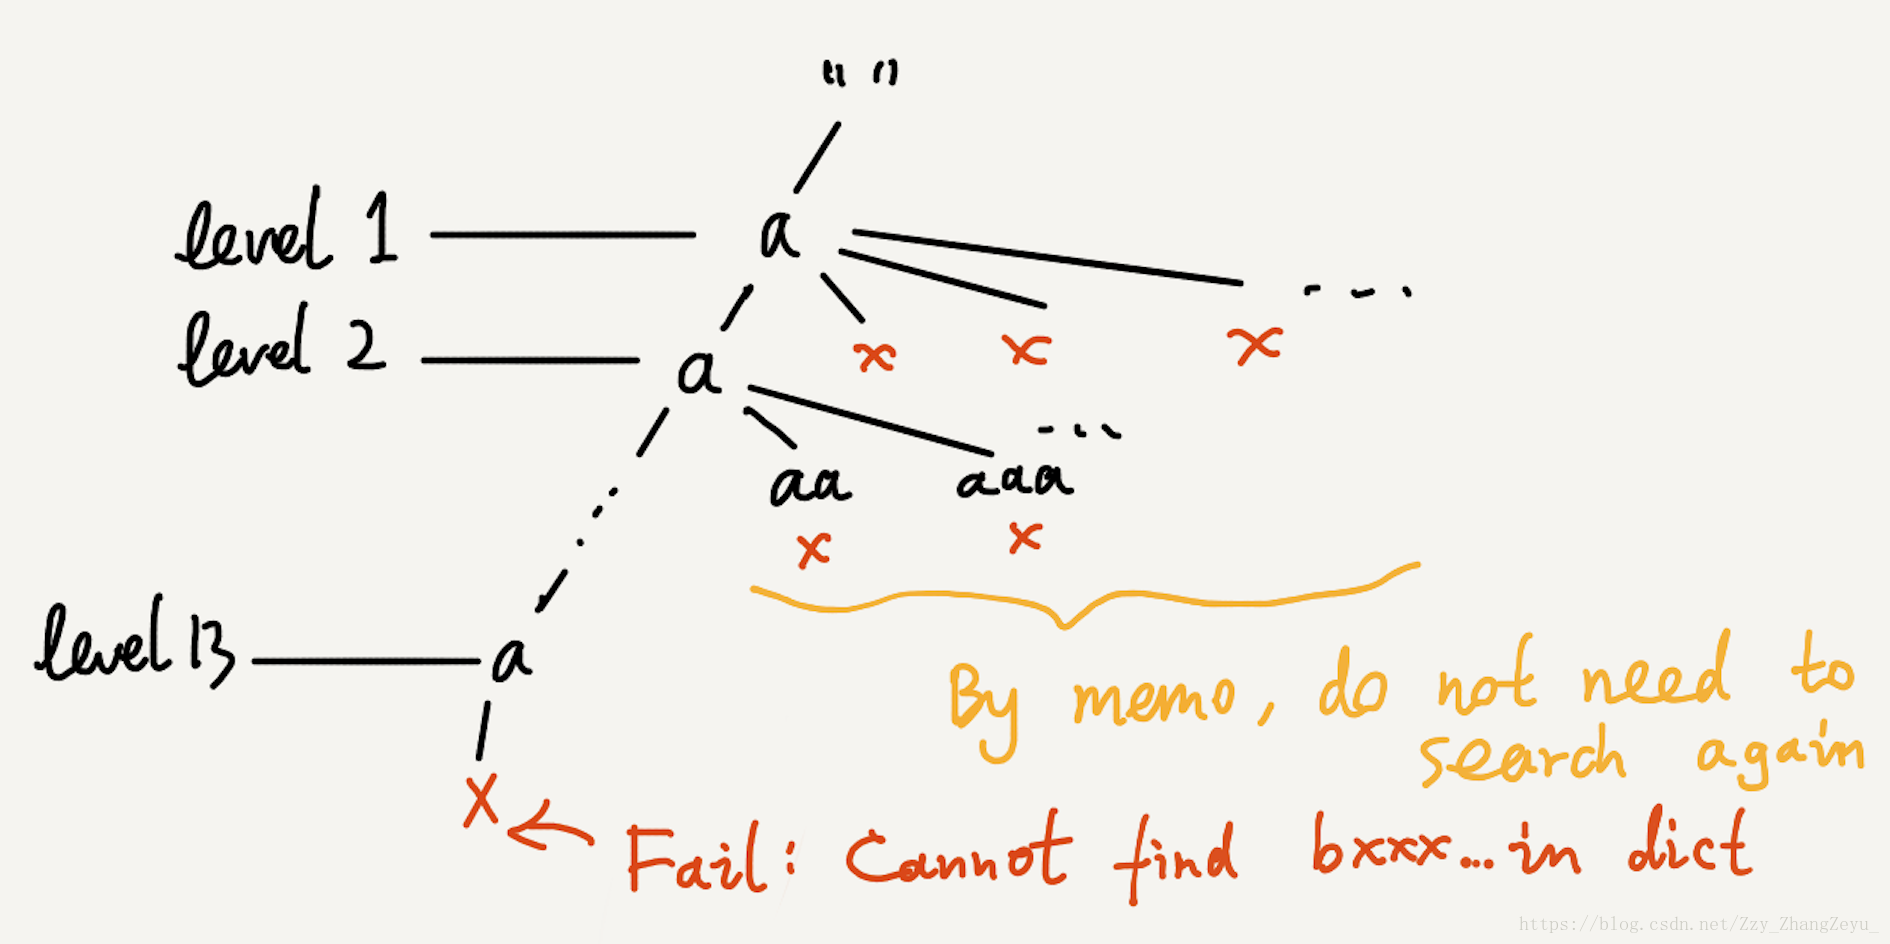 " "
level 1 a
x x x ....
level 2 a
aa aaa ....
x x
level 13 a
By memo, do not need to
search again
x
Fail: Cannot find bxxx... in dict
https://blog.csdn.net/Zzy_ZhangZeyu_